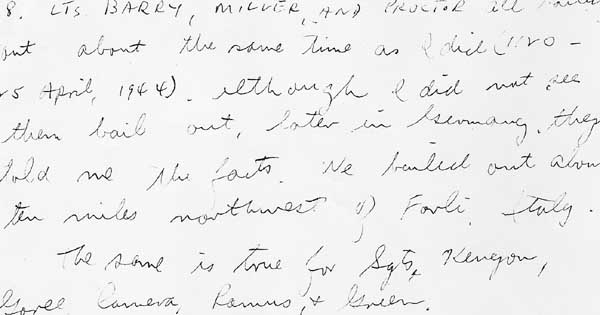 8. LTS. BARRY, MILLER, AND PROCTOR all bailed
out about the same time as I did (1120 -
25 April, 1944). Although I did not see
them bail out, later in Germany, they
told me the facts. We bailed out about
ten miles northwest of Forli, Italy.
The same is true for Sgts. Kenyon,
Goree, Camera, Ramus, & Green.